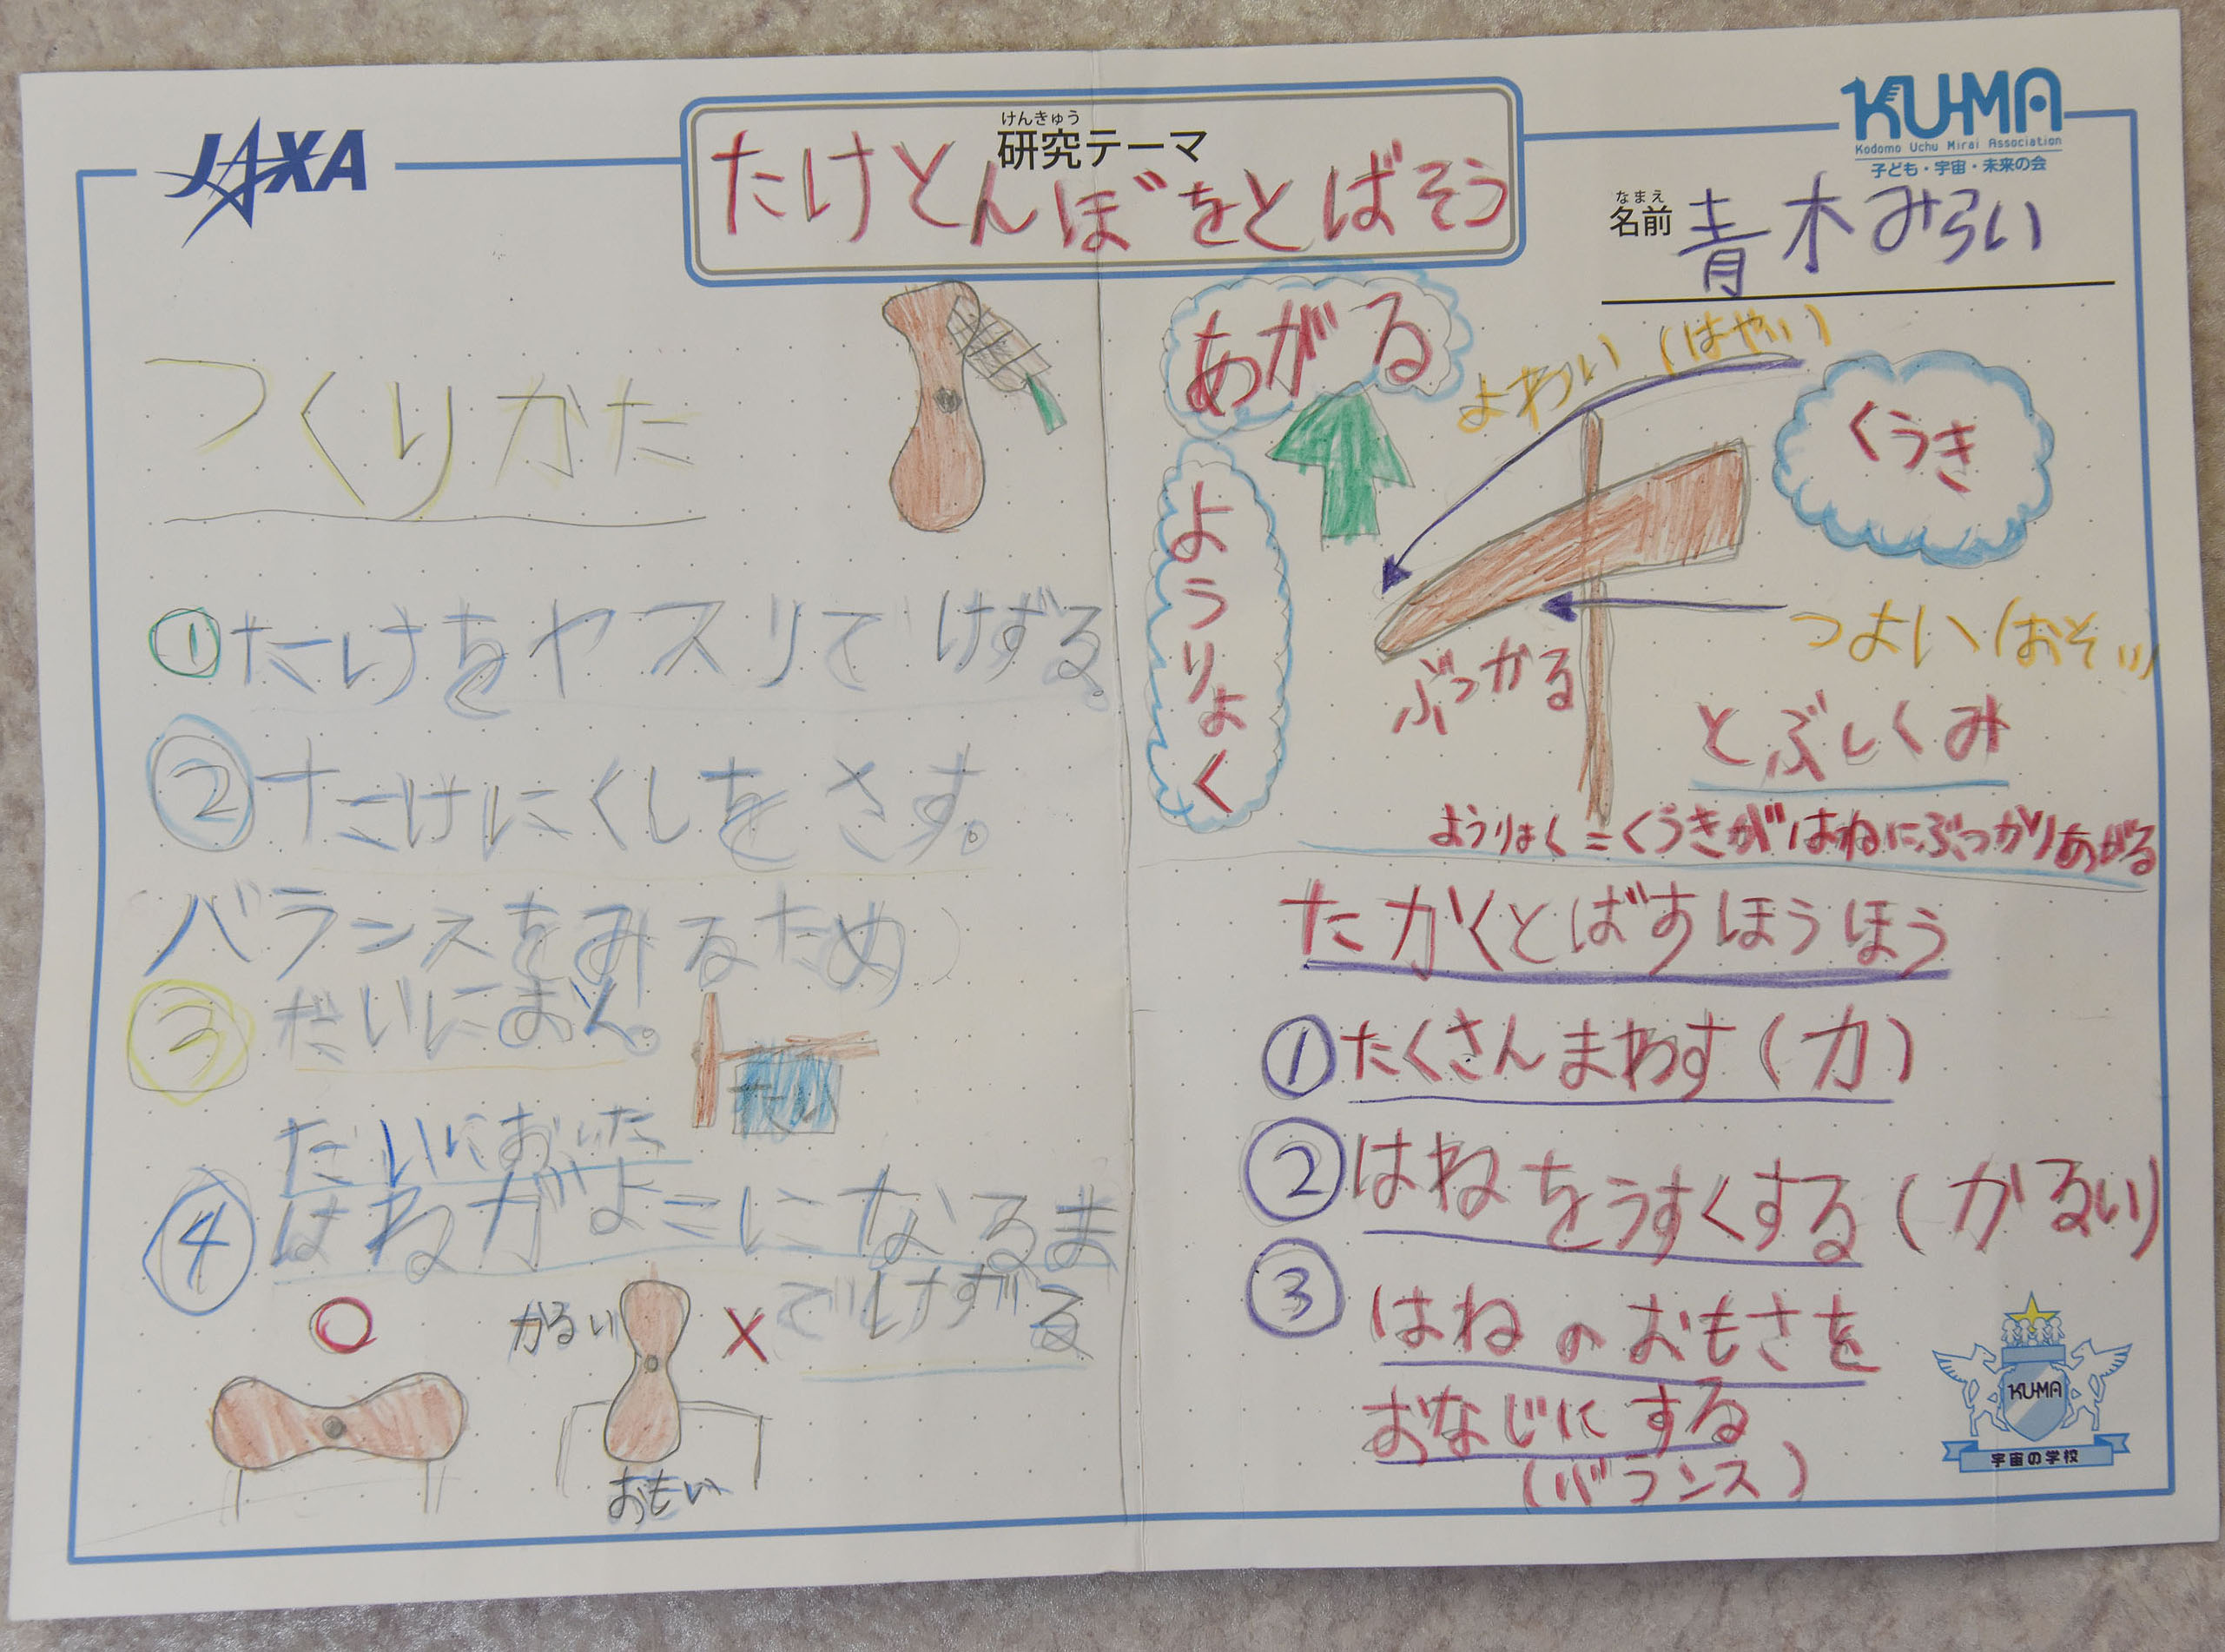 JAXA
けんきゅう
研究テーマ
たけとんぼをとばそう
KU-MA
Kodomo Uchu Mirai Association
子ども・宇宙・未来の会
なまえ
名前 青木みらい
つくりかた
①たけをヤスリでけずる。
②たけにくしをさす。
(バランスをみるため)
③だいにおく。
だい
だいにおいた
④はねがよこになるま
でけずる
かるい
×
おもい
あがる
ようりょく
よわい(はやい)
くうき
つよい(おそい)
ぶつかる
とぶしくみ
ようりょく=くうきがはねにぶつかりあがる
たかくとばすほうほう
①たくさんまわす(力)
②はねをうすくする(かるい)
③はねのおもさを
おなじにする
(バランス)
KU-MA
宇宙の学校